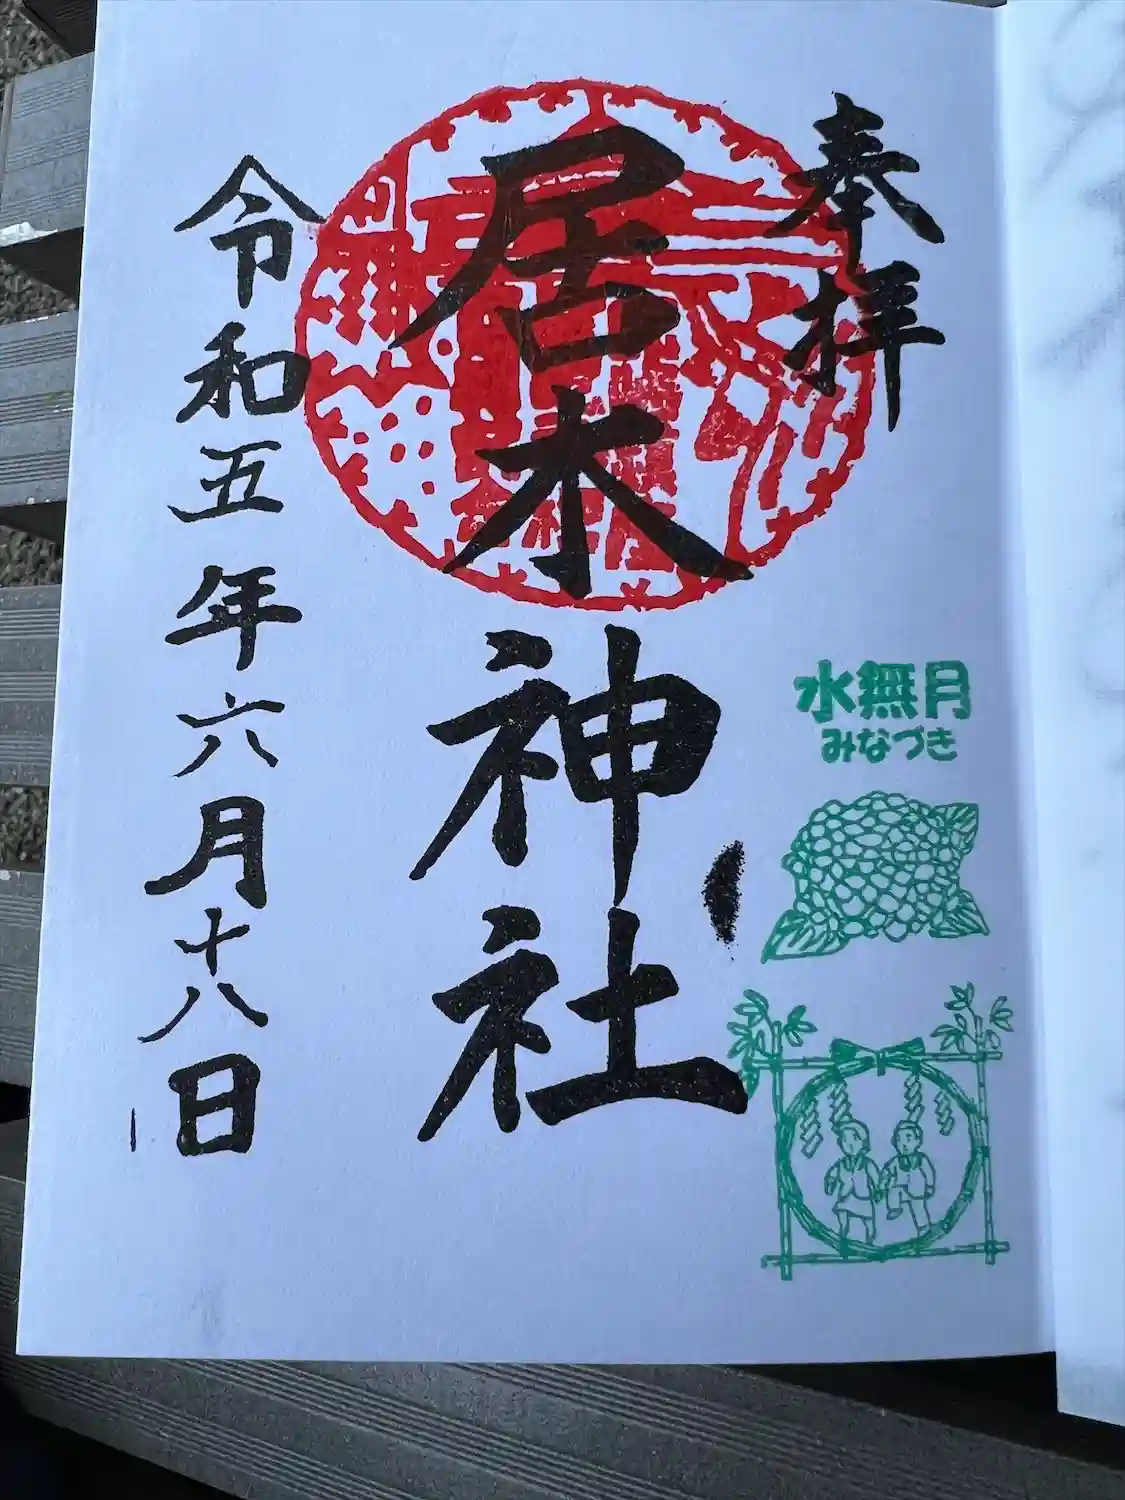 奉拝
居木神社
水無月
みなづき
令和五年六月十八日